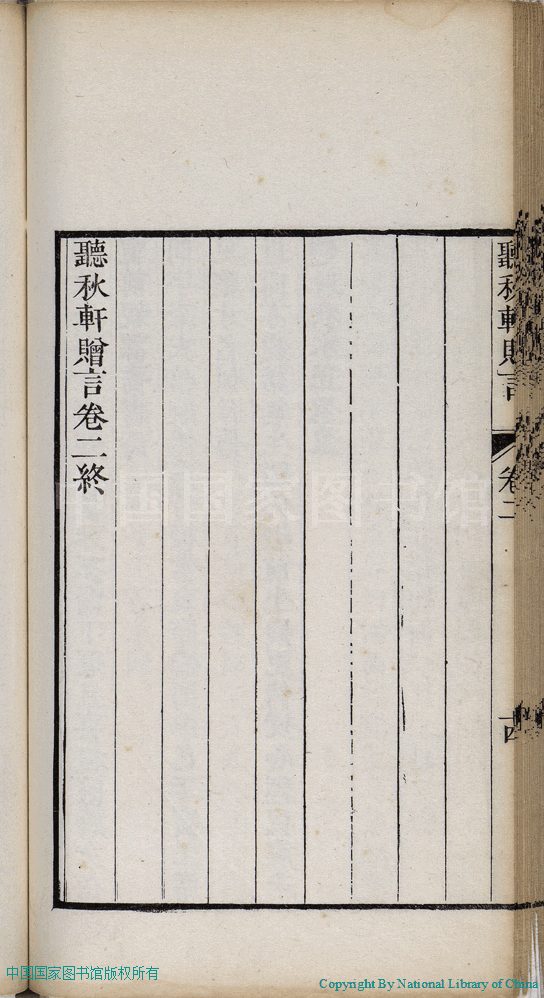 聽秋軒贈言
卷二
聽秋軒贈言卷二終
中国国家图书馆
中国国家图书馆版权所有
Copyright By National Library of China